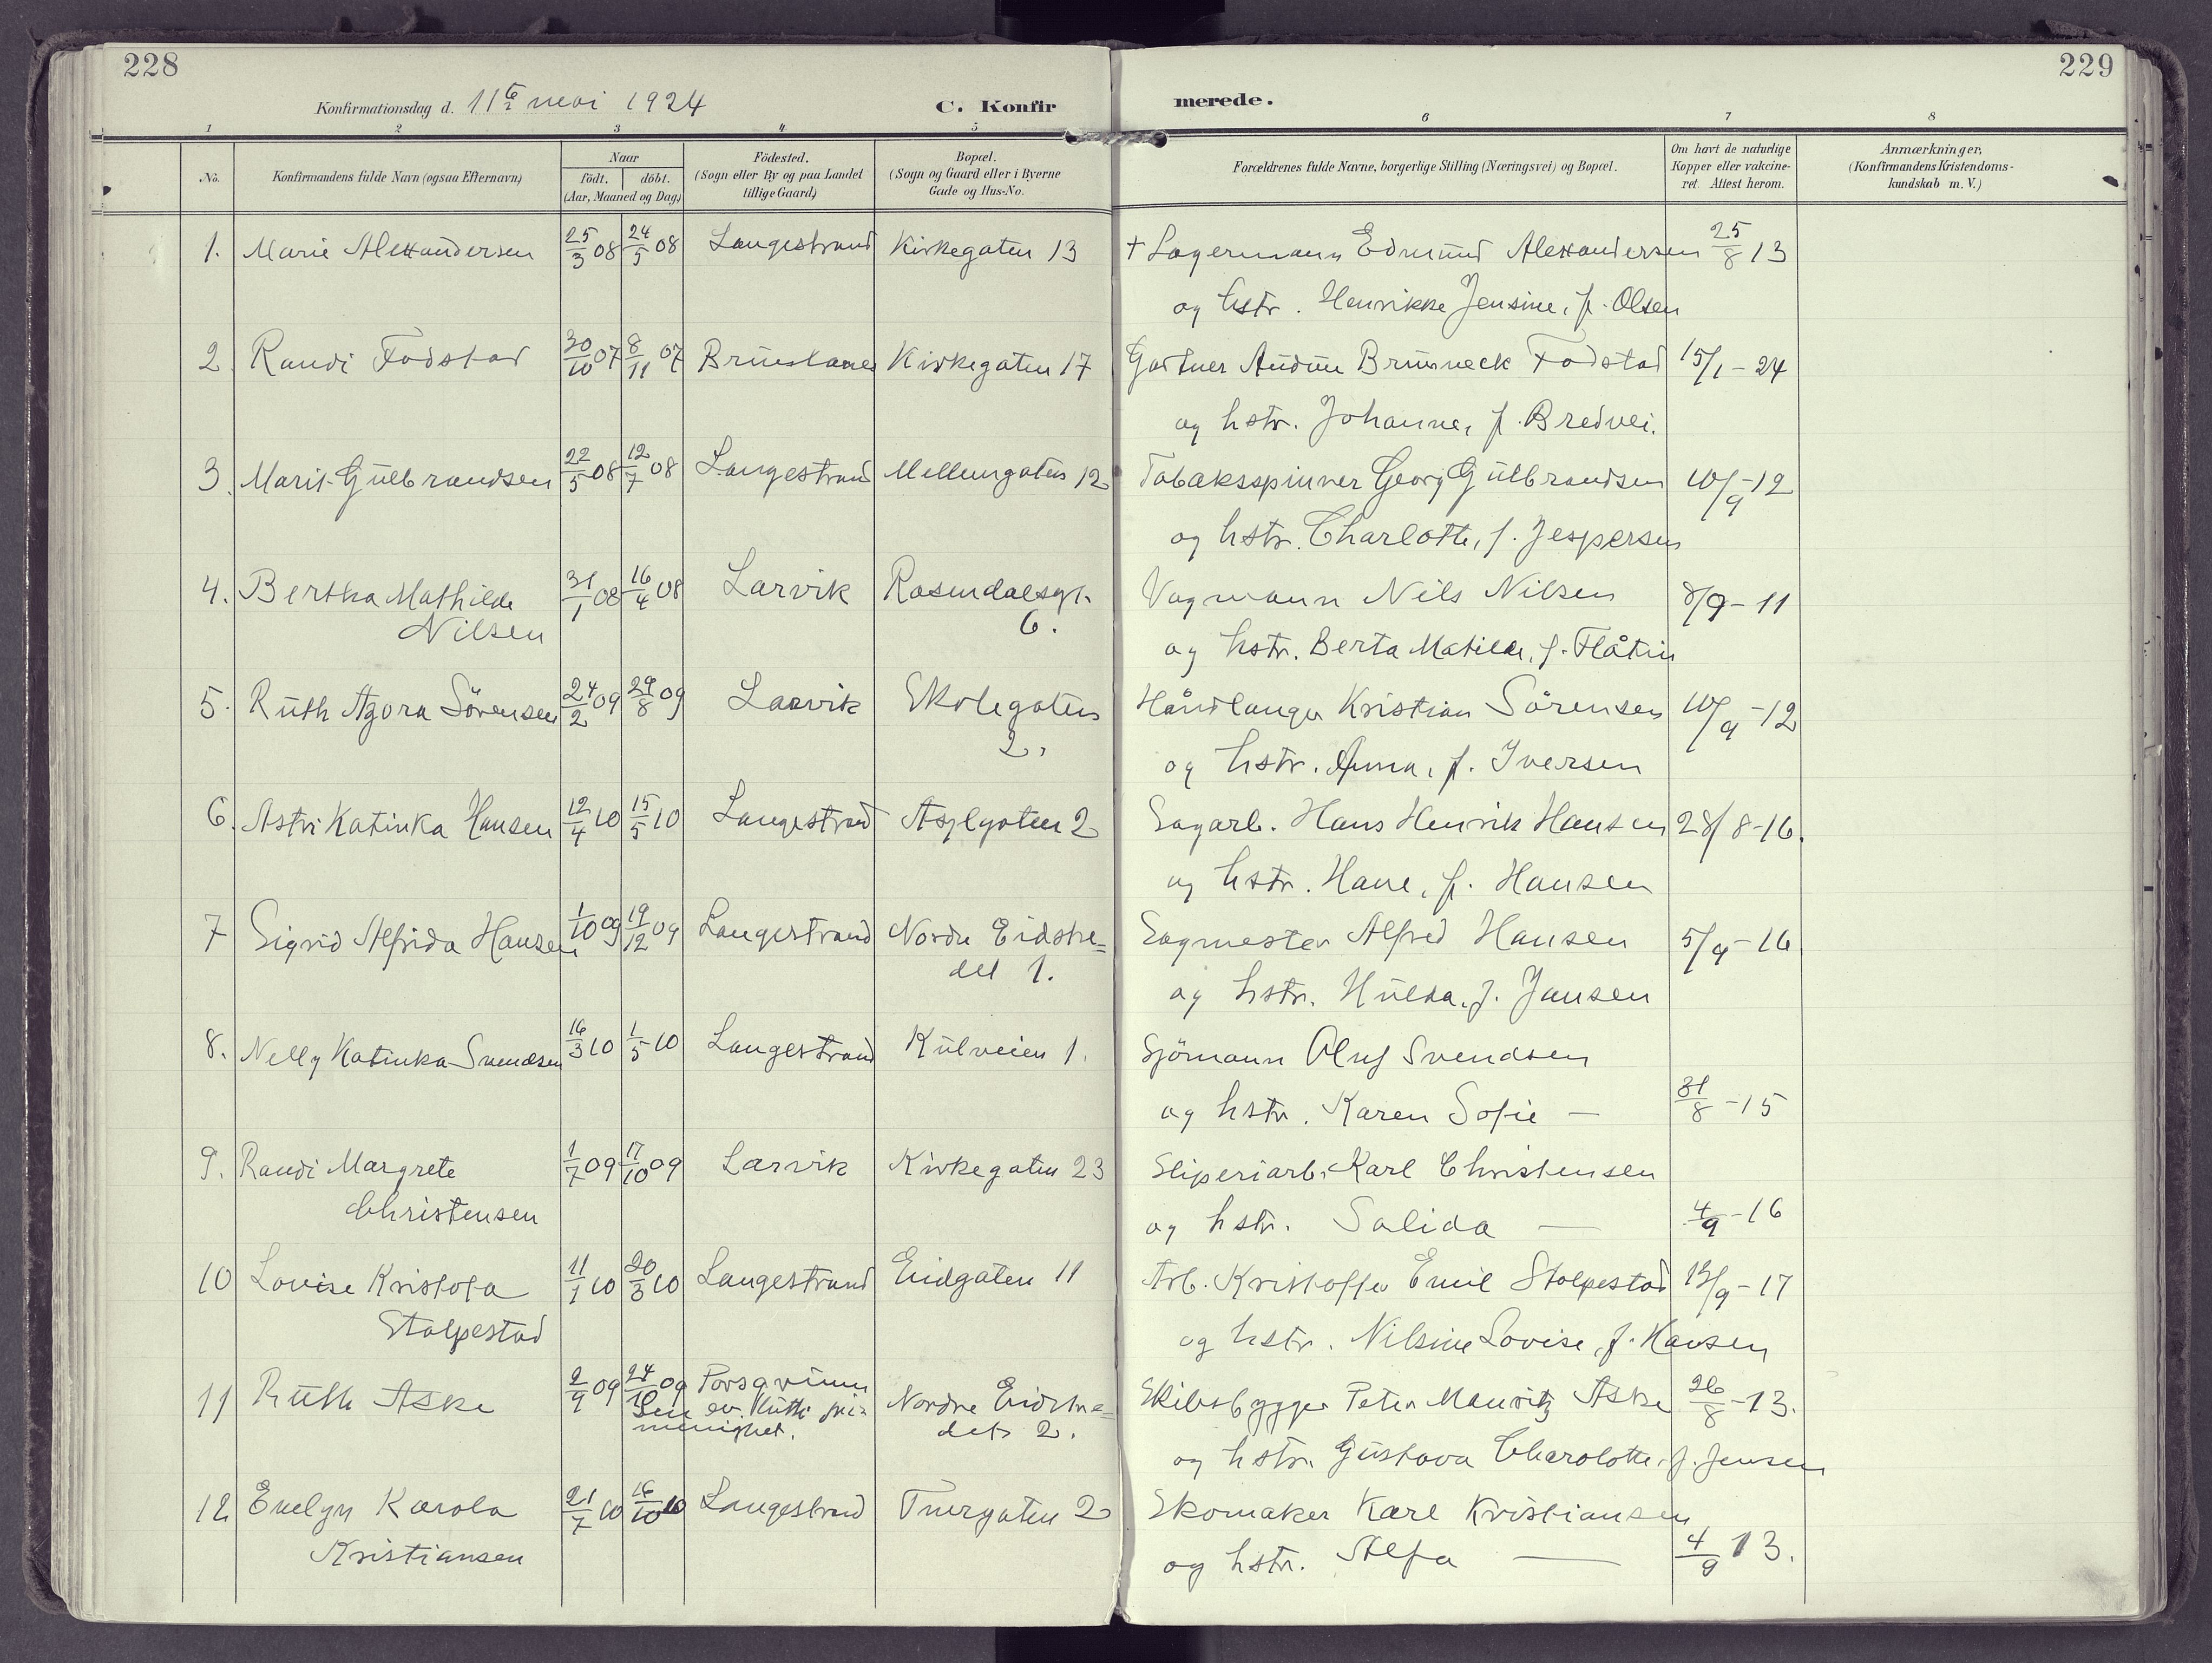 228
229
Konfirmationsdag d. 11te mai 1924
C. Konfirmerede.
1 2 3 4 5 6 7 8
No. Konfirmandens fulde Navn (ogsaa Efternavn) Naar født. døbt. (Aar, Maaned og Dag) Fødested. (Sogn eller By og paa Landet tillige Gaard) Bopæl. (Sogn og Gaard eller i Byerne Gade og Hus-No. Forældrenes fulde Navne, borgerlige Stilling (Næringsvei) og Bopæl. Om havt de naturlige Kopper eller vakcineret. Attest herom. Anmærkninger, (Konfirmandens Kristendomskundskab m. V.)
1. Marie Alexandersen 25/3 08 24/5 08 Langestrand Kirkegaten 13 + Lagermann Edmund Alexandersen 25/8 13
og hstr. Henrikke Jensine, f. Olsen
2. Randi Fodstad 30/10 07 8/11 07 Brunlanes Kirkegaten 17 Gartner Audun Brunneck Fodstad 15/1-24
og hstr. Johanne, f. Bredvei.
3. Marit Gulbrandsen 22/5 08 12/7 08 Langestrand Mellemgaten 12 Tobaksspinner Georg Gulbrandsen 10/9-12
og hstr. Charlotte, f. Jespersen
4. Bertha Mathilde 31/1 08 16/4 08 Larvik Rosendalsgt. Vogmann Nils Nilsen 8/9-11
Nilsen 6. og hstr. Berta Matilde, f. Flåtin
5. Ruth Agora Sörensen 24/2 09 29/8 09 Larvik Skolegaten Håndlanger Kristian Sörensen 10/9-12
2. og hstr. Anna, f. Iversen
6. Astri Katinka Hansen 12/4 10 15/5 10 Langestrand Asylgaten 2 Sagarb. Hans Henrik Hansen 28/8-16.
og hstr. Hane, f. Hansen
7 Sigrid Alfrida Hansen 1/10 09 19/12 09 Langestrand Nordre Eidstre= Sagmester Alfred Hansen 5/9-16
det 1. og hstr. Hulda, f. Jansen
8. Nelly Katinka Svendsen 16/3 10 1/5 10 Langestrand Kulveien 1. Sjömann Oluf Svendsen
og hstr. Karen Sofie — 31/8-15
9. Randi Margrete 1/7 09 17/10 09 Larvik Kirkegaten 23 Sliperiarb. Karl Christensen
Christensen og hstr. Salida — 4/9-16
10 Lovise Kristofa 11/1 10 20/3 10 Langestrand Eidgaten 11 Arb. Kristoffer Emil Stolpestad 13/9-17
Stolpestad og hstr. Nilsine Lovise, f. Hansen
11 Ruth Aske 2/9 09 24/10 09 Porsgrunn Nordre Eidstre= Skibsbygger Peter Mauritz Aske 26/8-13.
Den ev. luth. fri= det 2.
menighet. og hstr. Gustava Charolotte, f. Jensen
12 Evelyn Karola 21/7 10 16/10 10 Langestrand Tvergaten 2 Skomaker Karl Kristiansen
Kristiansen og hstr. Alfa — 4/9 13.